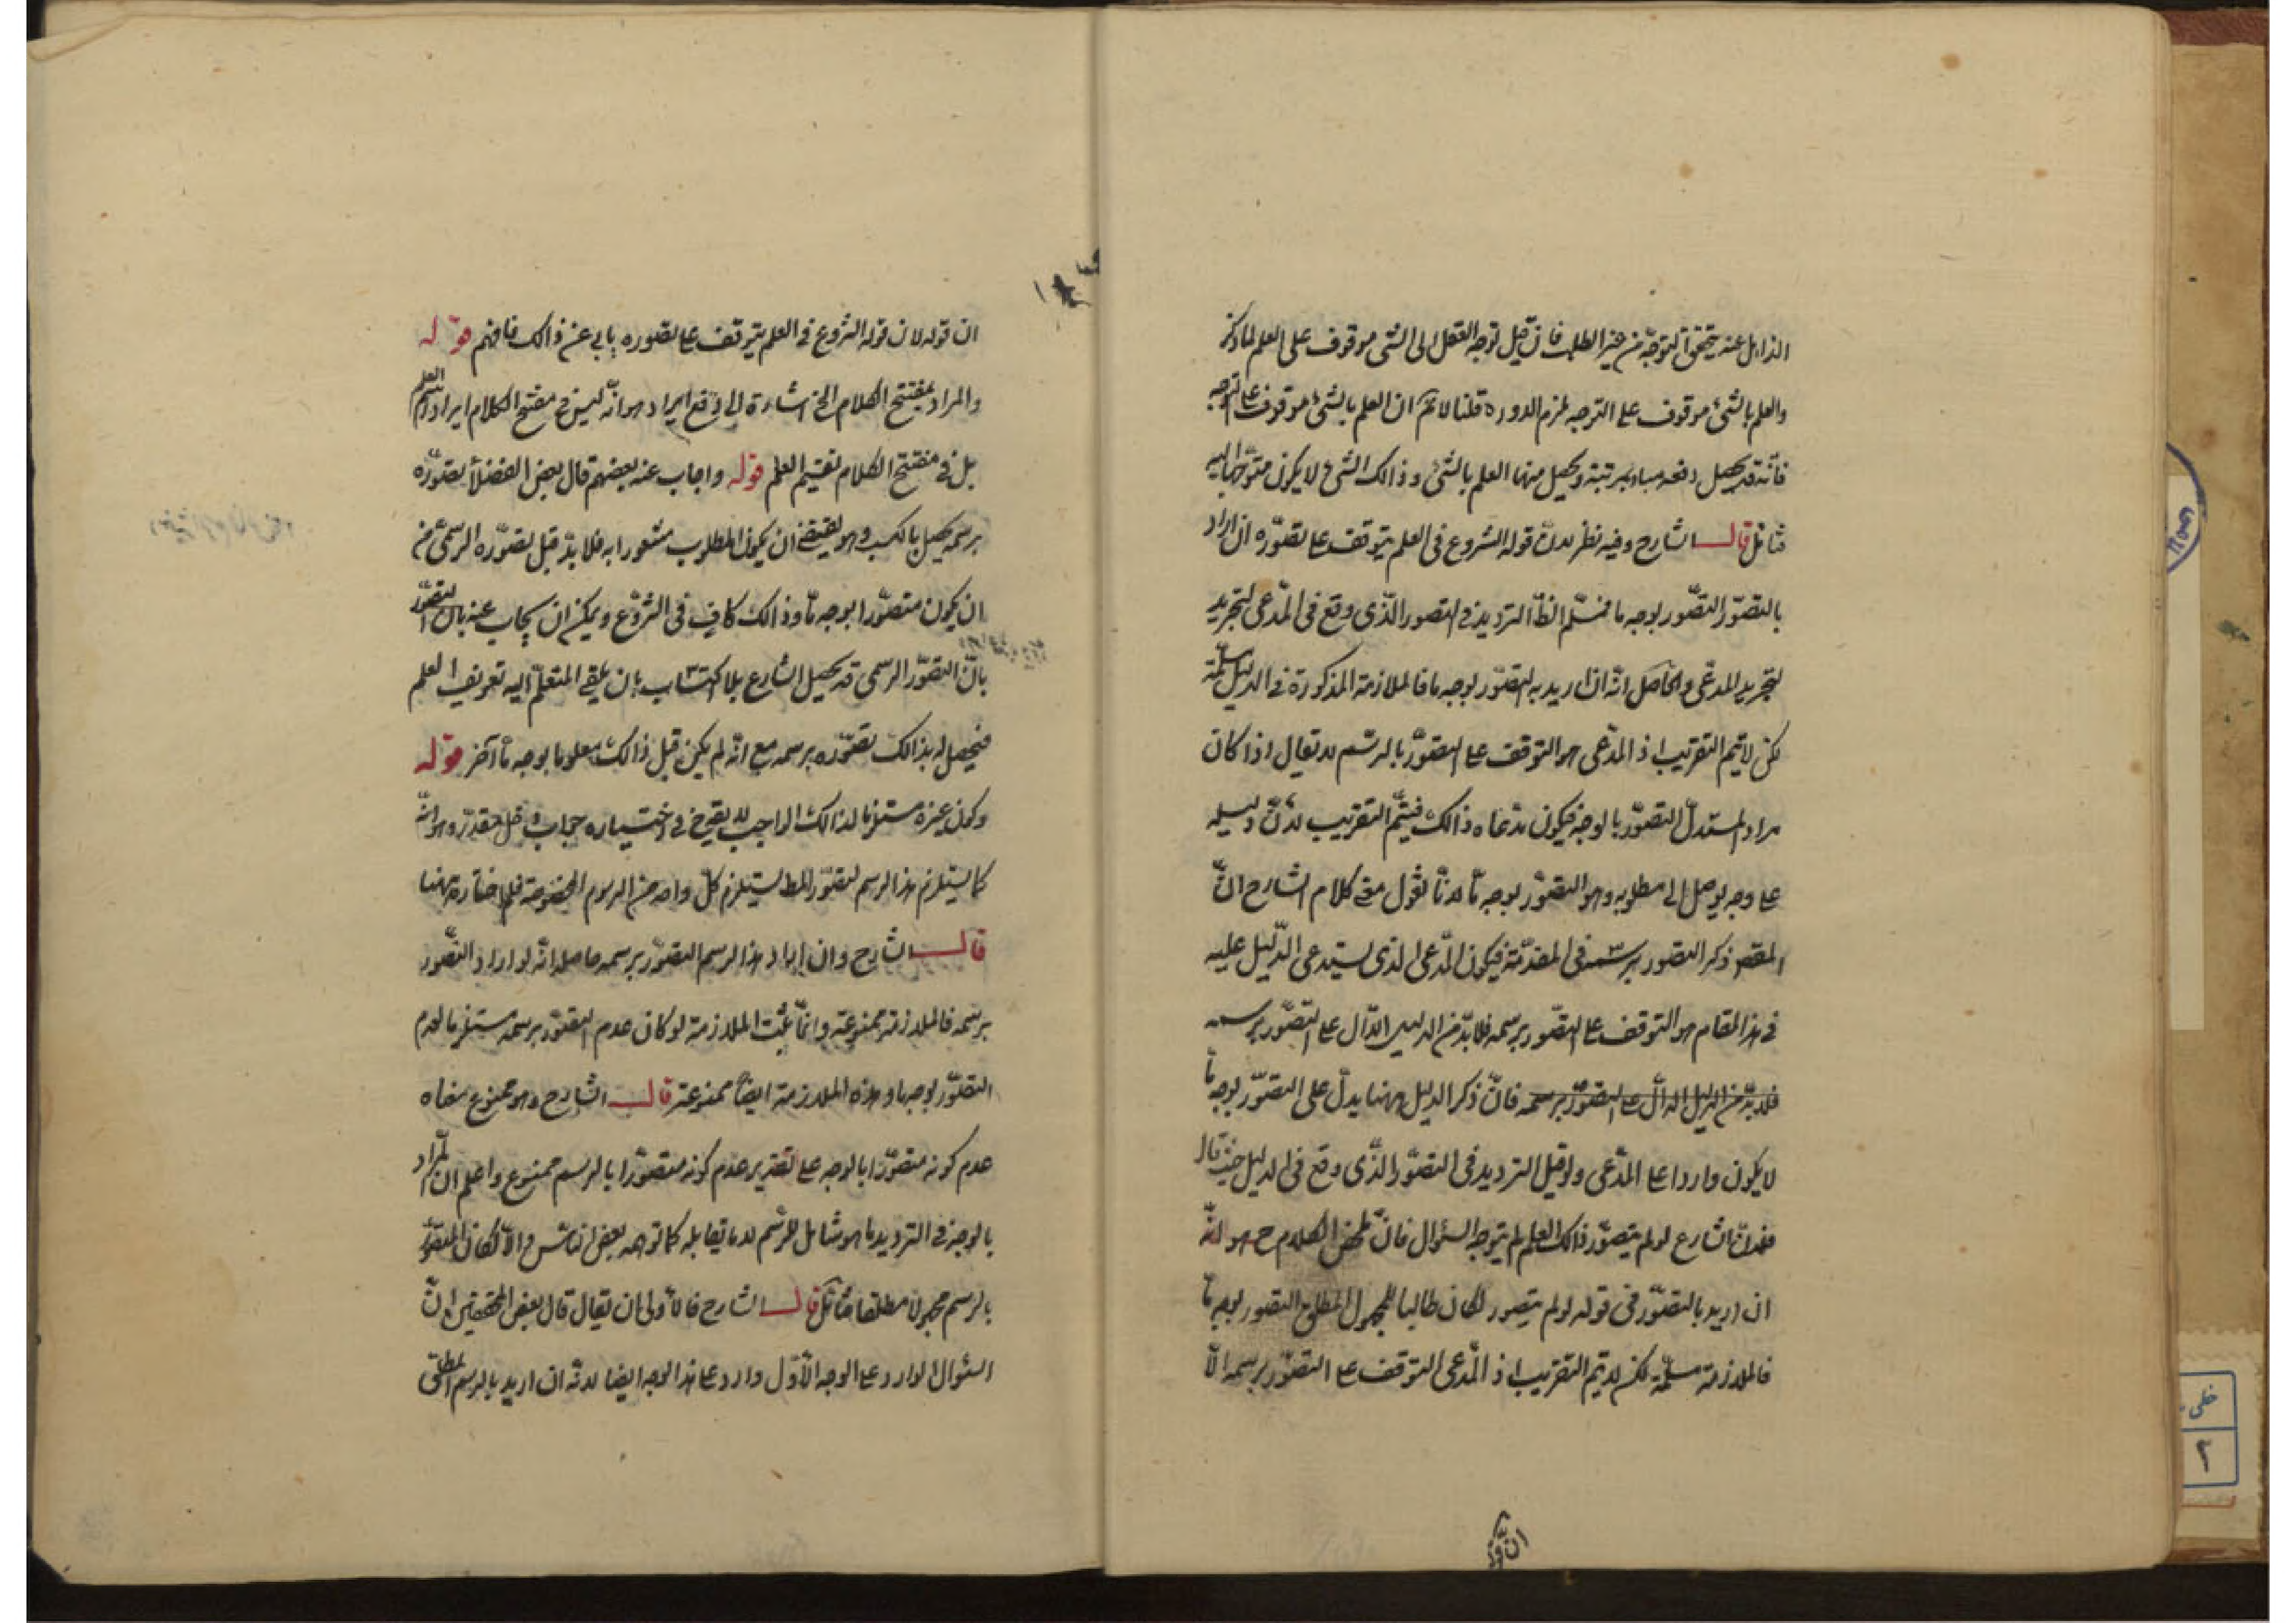 الذاهل عنه يتحقق التوجه من غير الطلب فان قيل توجه العقل الى الشئ موقوف على العلم لما ذكر
والعلم بالشئ موقوف على التوجه لزم الدور ه قلنا لا نم ان العلم بالشئ موقوف على التوجه
فانه قد يحصل دفعه مبادٍ مرتبة ويحصل منها العلم بالشئ وذالك الشئ لا يكون متوجها اليه
فتأمل قال الشارح وفيه نظر لان قوله الشروع فى العلم يتوقف على تصوّره ان اراد
بالتصوّر التصّور بوجه ما فمسلّم الظّ الترديد فى التصور الذّى وقع فى المدّعى لتجريد
لتجريد المدعّى والحاصل انّه ان اريد به التصّور بوجه ما فالملازمة المذكورة فى الدليل مسلمّة
لكن لا يتم التقريب اذ المدّعى هو التوقف على التصوّر بالرسّم لا يقال اذا كان
مراد المستدلّ التصوّر بالوجه فيكون مدّعاه ذالك فيتمّ التقريب لانّ دليله
على وجه يوصل الى مطلوبه وهو التصوّر بوجه مّا لانّا نقول معنى كلام الشارح انّ
المقصر ذكر التصور برسمه فى المقدّمة فيكون المدّعى الذى يستدعى الدّليل عليه
فى هذا المقام هو التوقف على التصّور برسمه فلا بدّ من الدليل الدّال على التصّور برسمه
فلا بدّ من الدليل الدالّ على التصوّر برسمه فانّ ذكر الدليل ههنا يدلّ على التصوّر بوجه مّا
لا يكون واردا على المدّعى ولو قيل الترديد فى التصوّر الذّى وقع فى الدليل حيث قال
فلانّ الشارع لو لم يتصوّر ذالك العلم لم يتوجه السئوال فانّ ملخص الكلام ح هو انّه
ان اريد بالتصوّر فى قوله لو لم يتصور لكان طالبا للمجهول المطلق التصور بوجه مّا
فالملازمة مسلمّة لكن لا يتم التقريب اذ المدّعى التوقف على التصوّر برسمه الاّ
ان قوله
ان قوله لان قوله الشروع فى العلم يتوقف على تصوره يابى عن ذالك فافهم قوله
والمراد بمفتتح الكلام الخ اشارة الى دفع ايراد هو انّه ليس فى مفتتح الكلام ايراد رسم العلم
بل فى مفتتح الكلام تقسيم العلم قوله واجاب عنه بعضهم قال بعض الفضلاء تصوّره
برسمه يحصل بالكسب وهو يقتضى ان يكون المطلوب مشعورا به فلا بدّ قبل تصوّره الرسمىّ من
ان يكون متصوّرا بوجه مّا وذالك كافٍ فى الشروع ويمكن ان يجاب عنه بان التصوّر
بانّ التصوّر الرسمى قد يحصل الشارع بلا اكتساب بان يلقى المتعلّم اليه تعريف العلم
فيحصل له بذالك تصوّره برسمه مع انّه لم يكن قبل ذالك معلوما بوجه مّا آخر قوله
وكون غيره مستلزما لذالك الواجب لا يقدح فى اختياره جواب دخل مقدّر وهو انّه
كما يستلزم هذا الرسم لتصوّر المط يستلزم كلّ واحد من الرسوم المخصوصة فلم اختاره ههنا
قال الشارح وان اراد بهذا الرسم التصوّر برسمه حاصله انّه لو اراد التصّور
برسمه فالملازمة ممنوعته وانمّا يثبت الملازمة لو كان عدم التصوّر برسمه مستلزما لعدم
التصوّر بوجه ما وهذه الملازمة ايضاً ممنوعته قال الشارح وهو ممنوع معناه
عدم كونه متصوّرا بالوجه على تقدير عدم كونه متصوّرا بالرسم ممنوع واعلم ان المراد
بالوجه فى الترديد ما هو شامل للرسّم لا ما يقابله كما توهمه بعض الناس والاّ لكان المتصوّر
بالرسم مجهولا مطلقا فتأمّل قال الشارح فالأولى ان يقال قال بعض المحققين انّ
السئوال الوارد على الوجه الأوّل وارد على هذا الوجه ايضا لانّه ان اريد بالرسم المطلق
خطى
۲